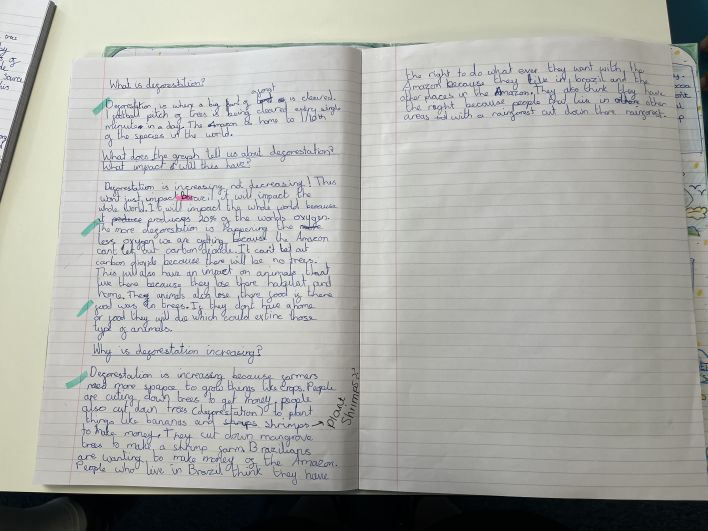 What is deforestation?
Deforestation is where a big part of a forest is cleared.
1 football pitch of trees is being cleared every single
minute in a day. The Amazon is home to 1/10th
of the species in the world.
What does the graph tell us about deforestation?
What impact will this have?
Deforestation is increasing, not decreasing! This
wont just impact Brazil it will impact the
whole world. It will impact the whole world because
it produces 20% of the worlds oxygen.
The more deforestation is happening the
less oxygen we are getting because the Amazon
cant let out carbon dioxide. It can't let out
carbon dioxide because there will be no trees.
This will also have an impact on animals that
live there because they lose there habitat and
home. The animals also lose there food if there
food was on trees. If they dont have a home
or food they will die which could extinc those
type of animals.
Why is deforestation increasing?
Deforestation is increasing because farmers
need more space to grow things like crops. People
are cuting down trees to get money, people
also cut down trees (deforestation) to plant
things like bananas and shrimps
Plant
Shrimps??
to make money. They cut down mangrove
trees to make a shrimp farm. Brazilians
are wanting to make money of the Amazon.
People who live in Brazil think they have
the right to do what ever they want with the
Amazon because they live in brazil and the
other places in the Amazon. They also think they have
the right because people that live in other
areas with a rainforest cut down there rainforest.